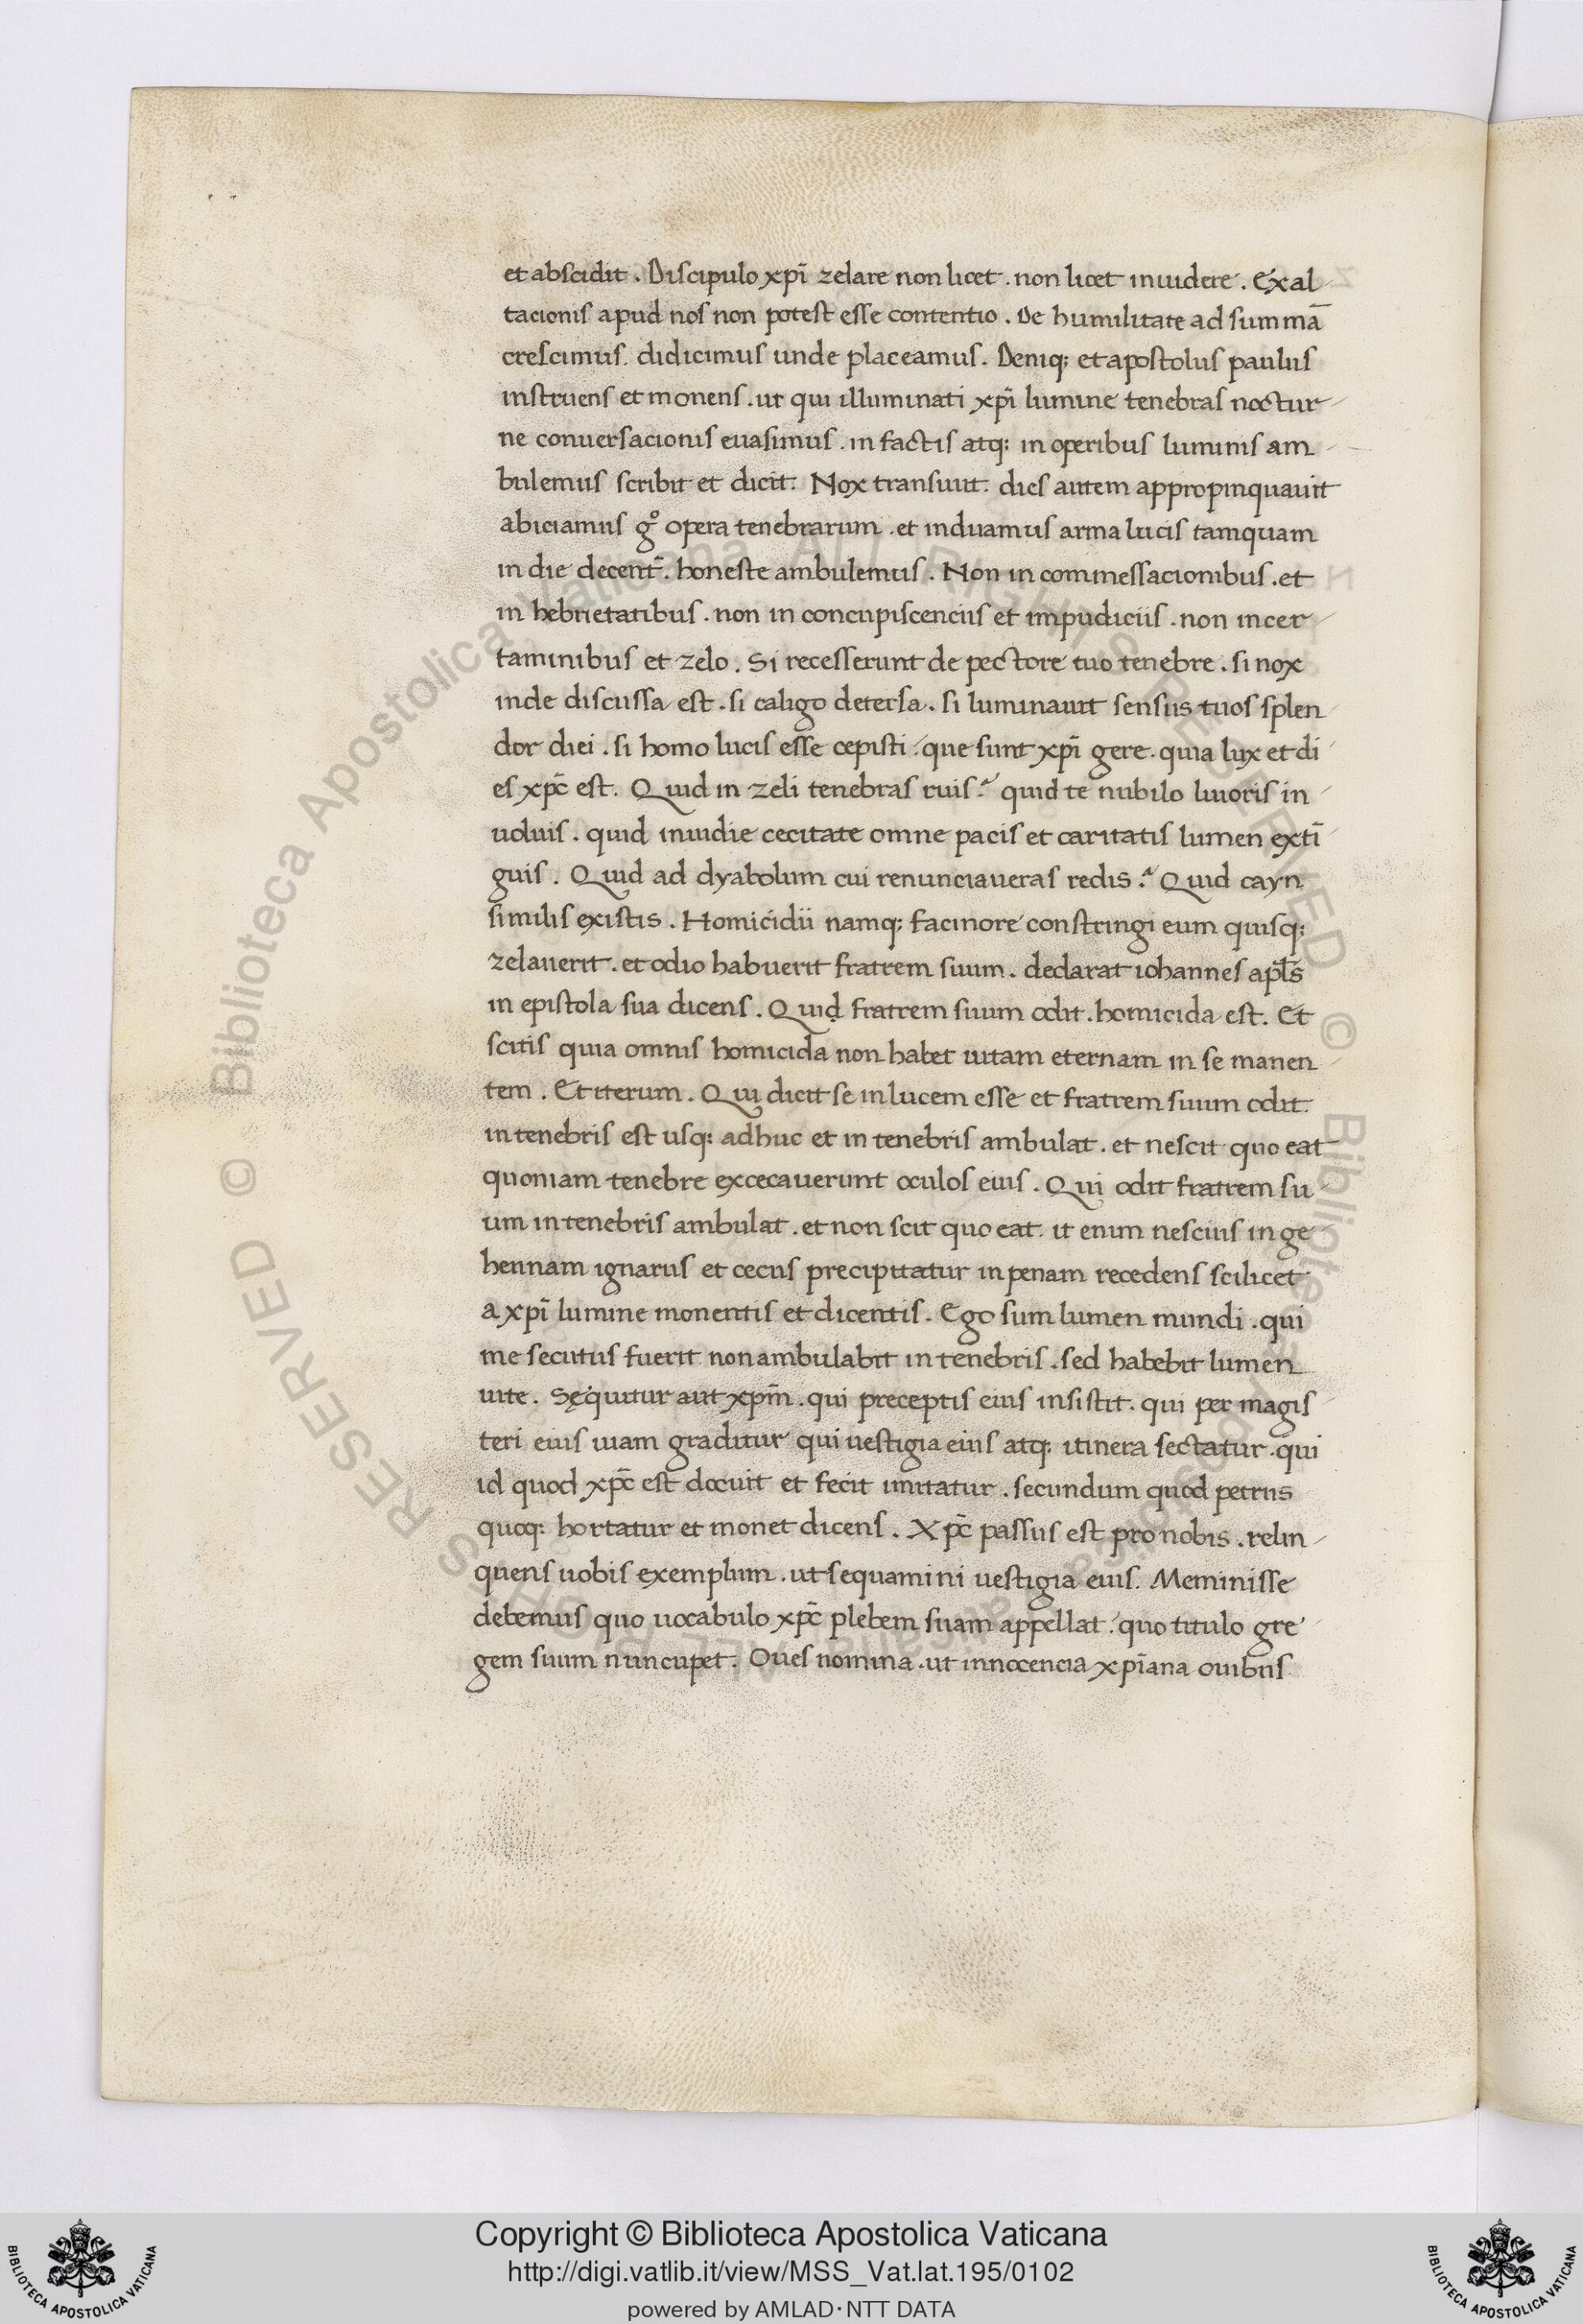 et abscidit . Discipulo xp̄i zelare non licet . non licet inuidere . Exal
tacionis apud nos non potest esse contentio . De humilitate ad summā
crescimus . didicimus unde placeamus . Deniq; et apostolus paulus
instruens et monens . ut qui illuminati xp̄i lumine tenebras noctur
ne conuersacionis euasimus . in factis atq; in operibus luminis am
bulemus scribit et dicit . Nox transiuit . dies autem appropinquauit
abiciamus gº opera tenebrarum . et induamus arma lucis tamquam
in die decent̄ . honeste ambulemus . Non in commessacionibus . et
in hebrietatibus . non in concupiscenciis et impudiciis . non in cer
taminibus et zelo . Si recesserunt de pectore tuo tenebre . si nox
inde discussa est . si caligo detersa . si luminauit sensus tuos splen
dor diei . si homo lucis esse cepisti . que sunt xp̄i gere . quia lux et di
es xp̄c est . Quid in zeli tenebras ruis ? quid te nubilo liuoris in
uoluis . quid inuidie cecitate omne pacis et caritatis lumen extī
guis . Quid ad dyabolum cui renunciaueras redis ? Quid cayn
similis existis . Homicidii namq; facinore constringi eum quisq;
zelauerit . et odio habuerit fratrem suum . declarat iohannes ap̄ls
in epistola sua dicens . Quiḍ fratrem suum odit . homicida est . Et
scitis quia omnis homicida non habet uitam eternam in se manen
tem . Et iterum . Qui dicit se in lucem esse et fratrem suum odit .
in tenebris est usq; adhuc et in tenebris ambulat . et nescit quo eat
quoniam tenebre excecauerunt oculos eius . Qui odit fratrem su
um in tenebris ambulat . et non scit quo eat . it enim nescius in ge
hennam ignarus et cecus precipitatur in penam recedens scilicet
a xp̄i lumine monentis et dicentis . Ego sum lumen mundi . qui
me secutus fuerit non ambulabit in tenebris . sed habebit lumen
uite . Sęquitur aut xp̄m . qui preceptis eius insistit . qui per magis
teri eius uiam graditur qui uestigia eius atq; itinera sectatur . qui
id quod xp̄c est docuit et fecit imitatur . secundum quod petrus
quoq; hortatur et monet dicens . Xp̄c passus est pro nobis . relin
quens uobis exemplum . ut sequamini uestigia eius . Meminisse
debemus quo uocabulo xp̄c plebem suam appellat . quo titulo gre
gem suum nuncupet . Oues nomina . ut innocencia xp̄iana ouibus
© Biblioteca Apostolica Vaticana ALL RIGHTS RESERVED © Biblioteca Apostolica Vaticana ALL RIGHTS RESERVED
Copyright © Biblioteca Apostolica Vaticana
http://digi.vatlib.it/view/MSS_Vat.lat.195/0102
powered by AMLAD·NTT DATA
BIBLIOTECA APOSTOLICA VATICANA
BIBLIOTECA APOSTOLICA VATICANA